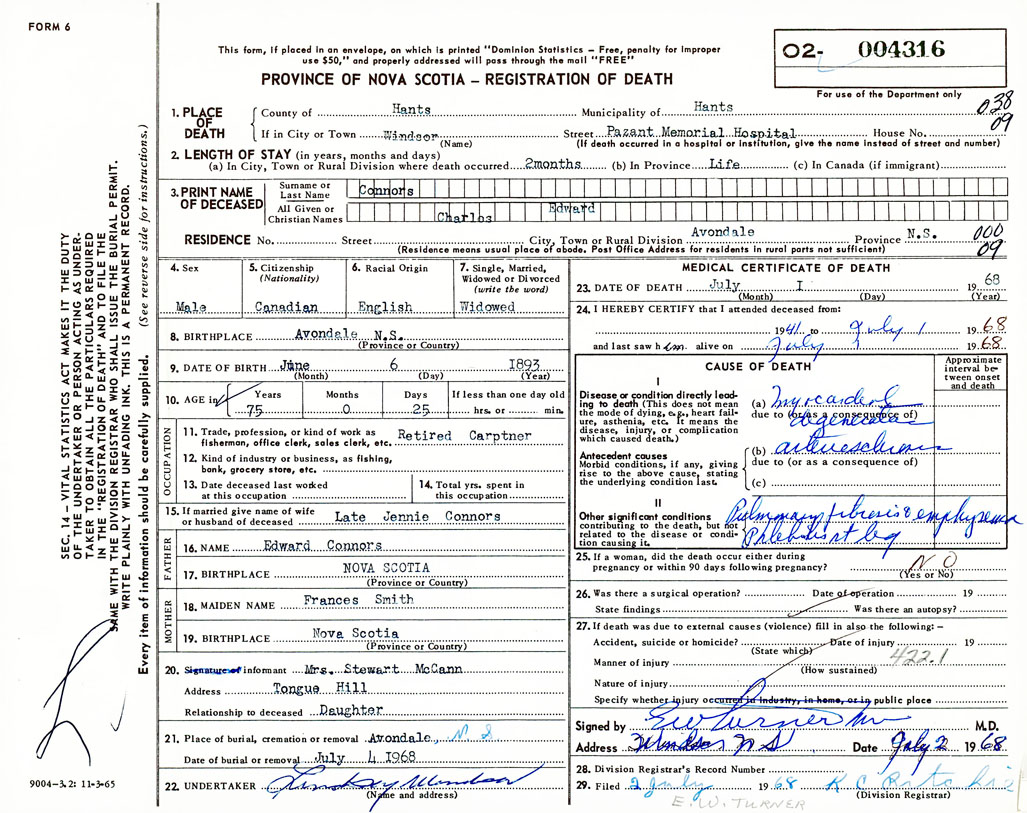 FORM 6
This form, if placed in an envelope, on which is printed "Dominion Statistics – Free, penalty for improper
use $50," and properly addressed will pass through the mail "FREE"
PROVINCE OF NOVA SCOTIA – REGISTRATION OF DEATH
O2- 004316
For use of the Department only
038
09
1. PLACE OF DEATH
County of Hants Municipality of Hants
If in City or Town Windsor Street Pazant Memorial Hospital House No.
(Name) (If death occurred in a hospital or institution, give the name instead of street and number)
2. LENGTH OF STAY (in years, months and days)
(a) In City, Town or Rural Division where death occurred 2months (b) In Province Life (c) In Canada (if immigrant)
3. PRINT NAME OF DECEASED
Surname or Last Name Connors
All Given or Christian Names Charles Edward
RESIDENCE No. Street City, Town or Rural Division Avondale Province N.S.
(Residence means usual place of abode. Post Office Address for residents in rural parts not sufficient)
000
09
4. Sex
Male
5. Citizenship
(Nationality)
Canadian
6. Racial Origin
English
7. Single, Married,
Widowed or Divorced
(write the word)
Widowed
8. BIRTHPLACE Avondale N.S.
(Province or Country)
9. DATE OF BIRTH June 6 1893
(Month) (Day) (Year)
10. AGE in Years Months Days If less than one day old
75 0 25 hrs. or min.
OCCUPATION
11. Trade, profession, or kind of work as Retired Carptner
fisherman, office clerk, sales clerk, etc.
12. Kind of industry or business, as fishing,
bank, grocery store, etc.
13. Date deceased last worked
at this occupation
14. Total yrs. spent in
this occupation
15. If married give name of wife
or husband of deceased Late Jennie Connors
FATHER
16. NAME Edward Connors
17. BIRTHPLACE NOVA SCOTIA
(Province or Country)
MOTHER
18. MAIDEN NAME Frances Smith
19. BIRTHPLACE Nova Scotia
(Province or Country)
20. Signature of informant Mrs. Stewart McCann
Address Tongue Hill
Relationship to deceased Daughter
21. Place of burial, cremation or removal Avondale, N S
Date of burial or removal July 4 1968
22. UNDERTAKER Lindsay Windsor
(Name and address)
MEDICAL CERTIFICATE OF DEATH
23. DATE OF DEATH July I 1968
(Month) (Day) (Year)
24. I HEREBY CERTIFY that I attended deceased from:
1941 to July 1 1968
and last saw him alive on July 1 1968
CAUSE OF DEATH
Approximate
interval be-
tween onset
and death
I
Disease or condition directly lead-
ing to death (This does not mean
the mode of dying, e.g., heart fail-
ure, asthenia, etc. It means the
disease, injury, or complication
which caused death.)
(a) Myocardial
due to (or as a consequence of)
degeneration
Antecedent causes
Morbid conditions, if any, giving
rise to the above cause, stating
the underlying condition last.
(b) arteriosclerosis
due to (or as a consequence of)
(c)
II
Other significant conditions
contributing to the death, but not
related to the disease or condi-
tion causing it.
Pulmonary fibrosis & emphysema
Phlebitis rt leg
25. If a woman, did the death occur either during
pregnancy or within 90 days following pregnancy? NO
(Yes or No)
26. Was there a surgical operation? Date of operation 19
State findings Was there an autopsy?
27. If death was due to external causes (violence) fill in also the following: –
Accident, suicide or homicide? Date of injury 19
(State which)
Manner of injury 422.1
(How sustained)
Nature of injury
Specify whether injury occurred in industry, in home, or in public place
Signed by E W Turner M.D.
Address Windsor N S Date July 2 1968
28. Division Registrar's Record Number
29. Filed 2 July 1968
(Division Registrar)
E. W. TURNER
SEC. 14 – VITAL STATISTICS ACT MAKES IT THE DUTY
OF THE UNDERTAKER OR PERSON ACTING AS UNDER-
TAKER TO OBTAIN ALL THE PARTICULARS REQUIRED
IN THE "REGISTRATION OF DEATH" AND TO FILE THE
SAME WITH THE DIVISION REGISTRAR WHO SHALL ISSUE THE BURIAL PERMIT.
WRITE PLAINLY WITH UNFADING INK. THIS IS A PERMANENT RECORD.
Every item of information should be carefully supplied. (See reverse side for instructions.)
9004–3.2: 11-3-65